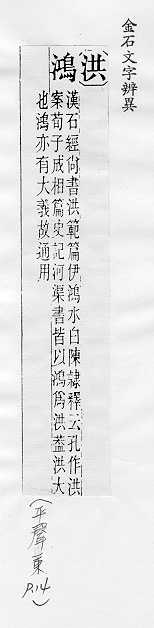 金石文字辨異
洪
鴻
漢石經尚書洪範篇伊鴻水白陳隷釋云孔作洪
案荀子成相篇史記河渠書皆以鴻爲洪葢洪大
也鴻亦有大義故通用
(平聲東 P.14)